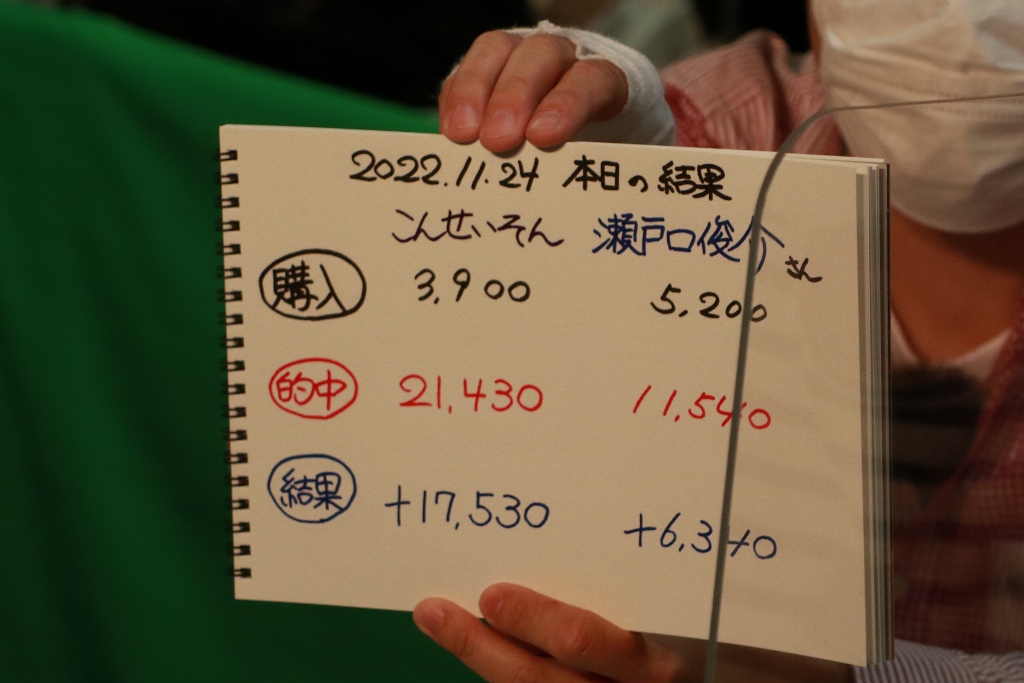 2022.11.24 本日の結果
こんせいそん 瀬戸口俊介さん
購入 3,900 5,200
的中 21,430 11,540
結果 +17,530 +6,340